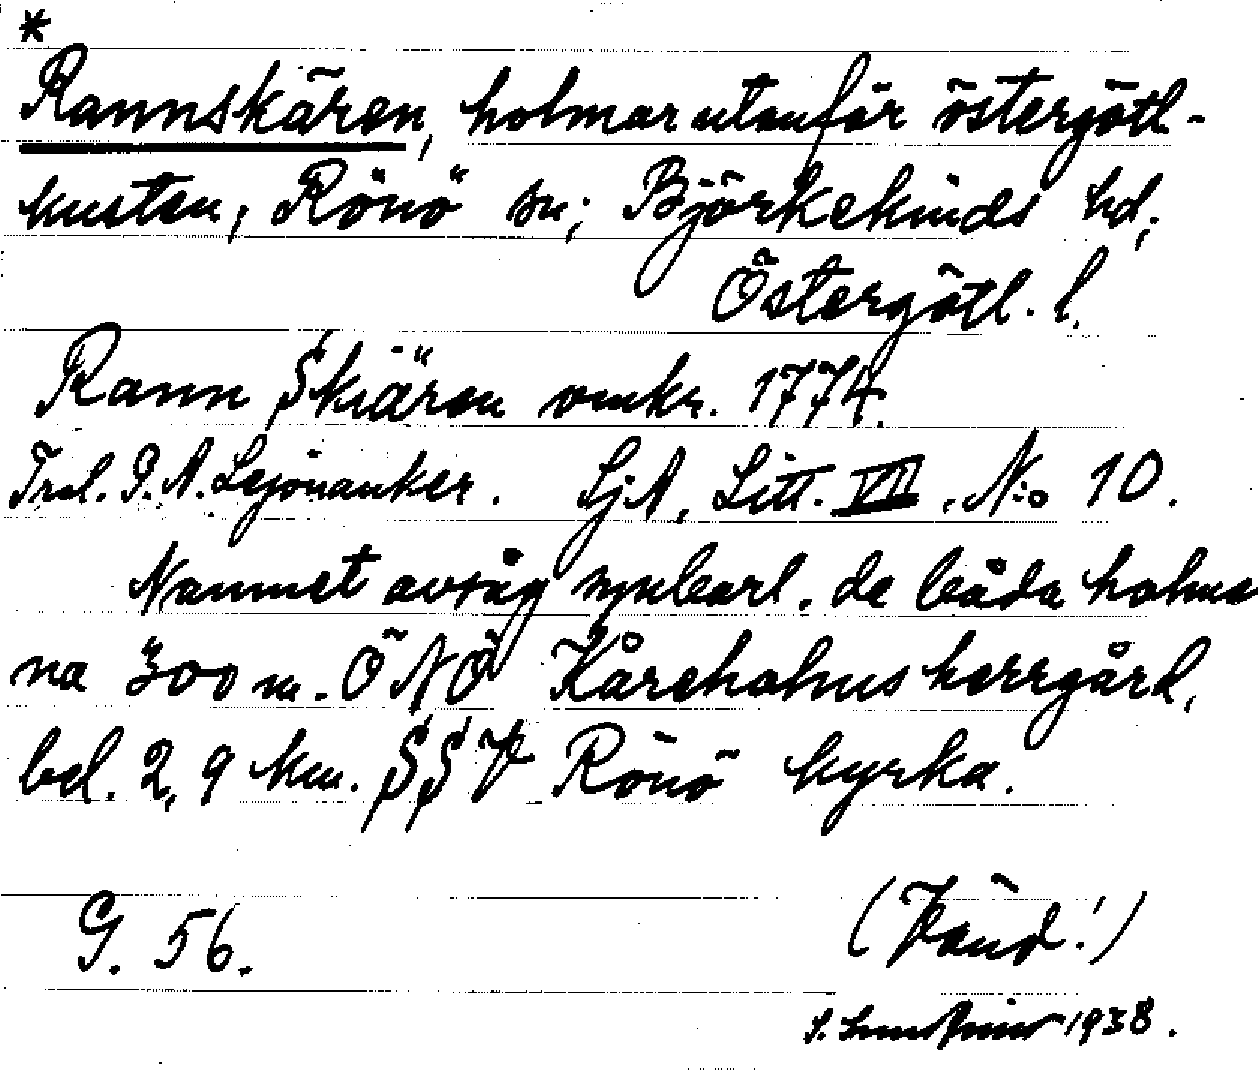 *
Rannskären, holmar utanför östergötl-
kusten, Rönö sn; Björkekinds hd;
Östergötl. l.
Rann Skiären omkr. 1774.
Trol. P. A. Lejonanker. SjA, Litt. VII. N:o 10.
Namnet avsåg synbarl. de båda holmar
na 300 m. ÖNÖ Kåreholms herrgård,
bel. 2,9 km. SSV Rönö kyrka.
G. 56. (Vänd!)
S. 1938.